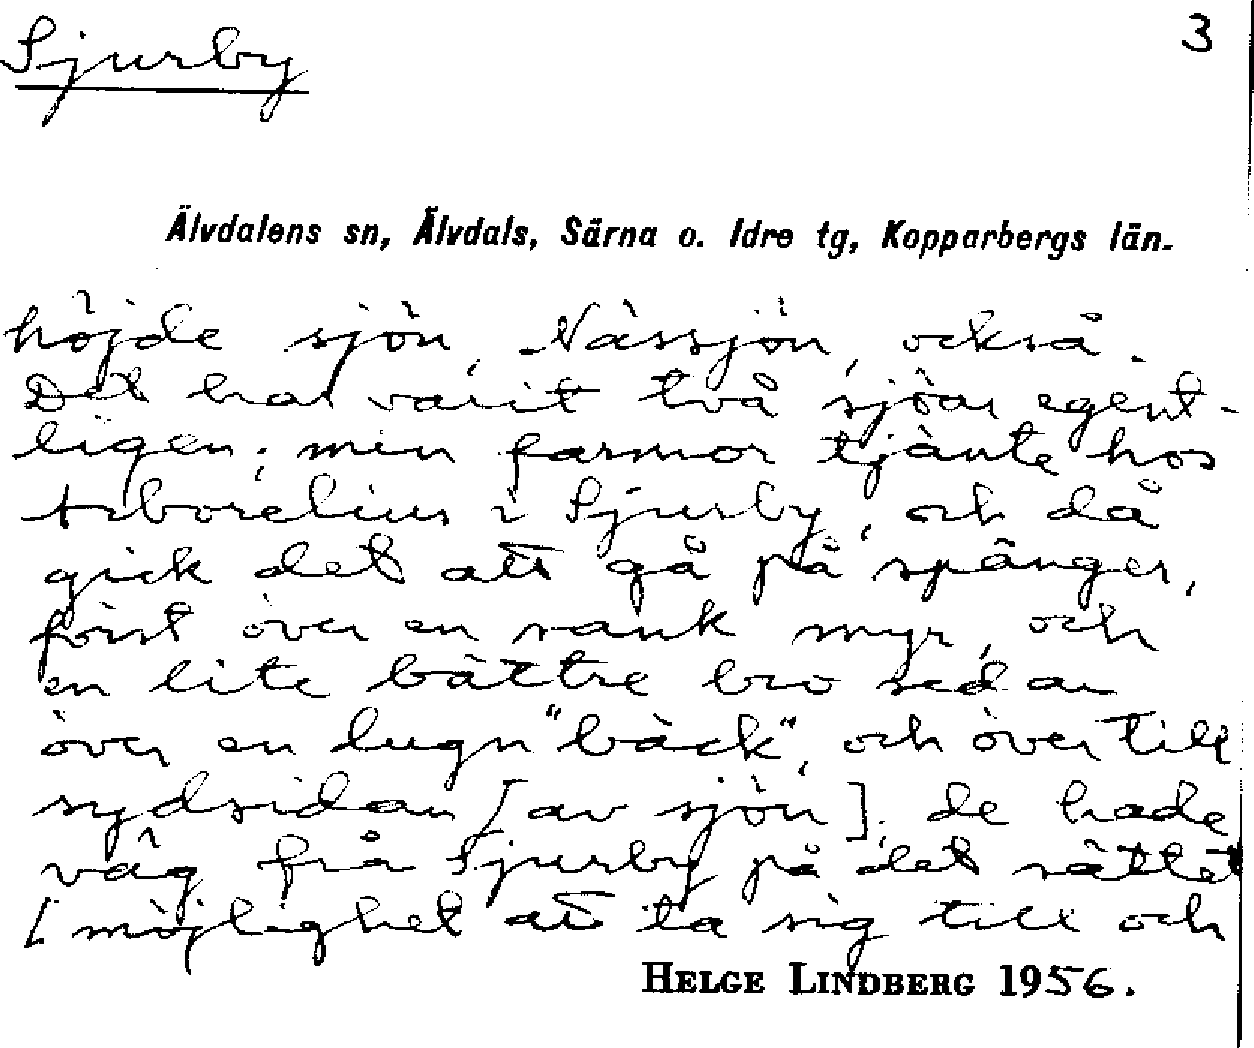 Sjurby
3
Älvdalens sn, Älvdals, Särna o. Idre tg, Kopparbergs län.
höjde sjön, Nässjön, också.
Det har varit två sjöar egent-
ligen; min farmor tjänte hos
Arborelius i Sjurby, och då
gick det att gå på spänger,
först över en sank myr, och
en lite bättre bro sedan
över en lugn "bäck", och över till
sydsidan [av sjön]; de hade
väg från Sjurby på det sättet
[möjlighet att ta sig till och
HELGE LINDBERG 1956.